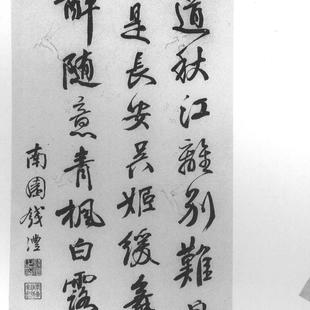 道秋江離别難
是長安吴姬緩舞
醉随意青楓白露
南園錢灃